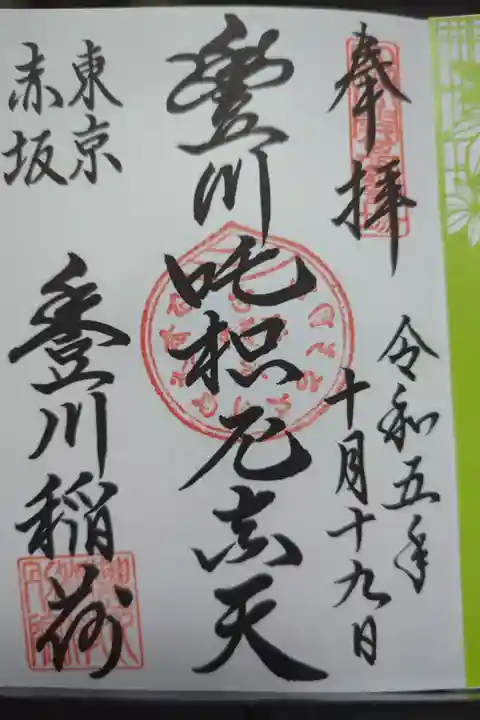 奉拝
令和五年
十月十九日
豊川吒枳尼真天
東京
赤坂
豊川稲荷